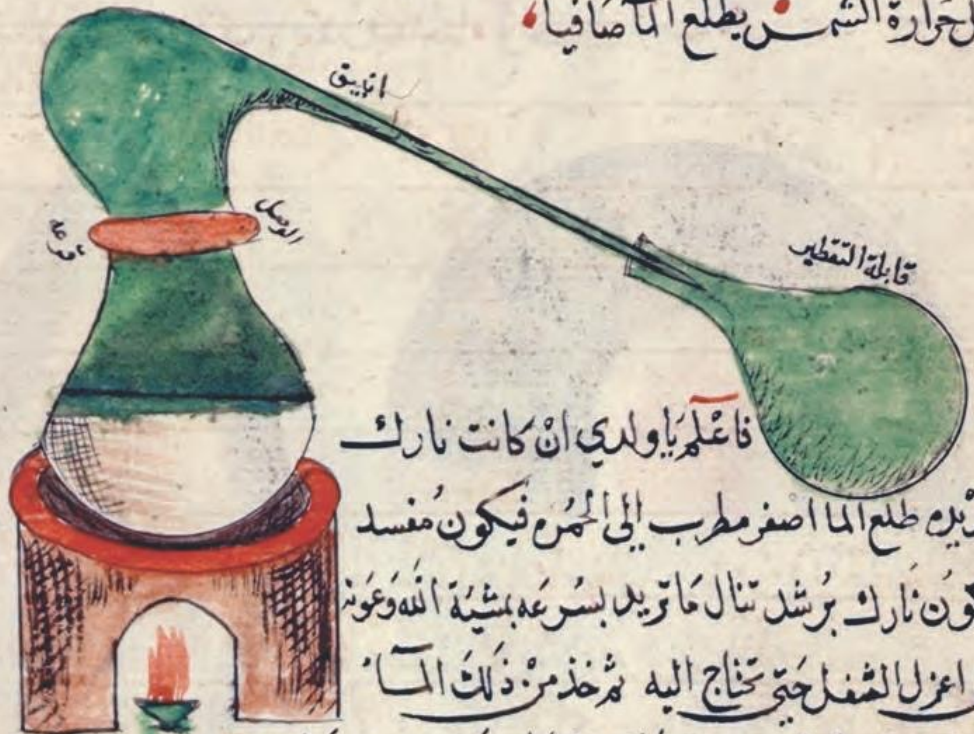 حرارة الشمس يطلع المآ صافياً
انبيق
الوصل
قرعه
قابلة التقطير
فاعْلم يَا ولدي انْ كانت نارك
طلع الما اصفر مطرب الي الحمُره فيكون مُفسد
نارك برُشد تنال مَا تريد بسُرعَه بمشيّة الله وَعَونه
اعزل الثفل حَتي تحتاج اليه ثم خذ منْ ذلكَ المآء